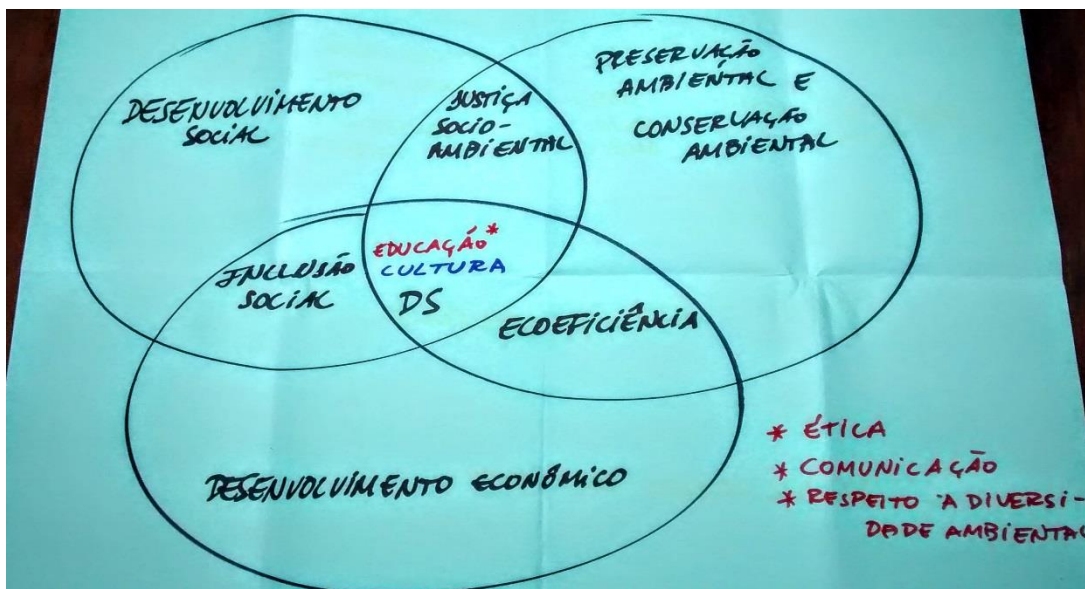 DESENVOLVIMENTO
SOCIAL
JUSTIÇA
SOCIO-
AMBIENTAL
PRESERVAÇÃO
AMBIENTAL E
CONSERVAÇÃO
AMBIENTAL
INCLUSÃO
SOCIAL
EDUCAÇÃO*
CULTURA
DS
ECOEFICIÊNCIA
DESENVOLVIMENTO ECONÔMICO
* ÉTICA
* COMUNICAÇÃO
* RESPEITO À DIVERSI-
DADE AMBIENTAL